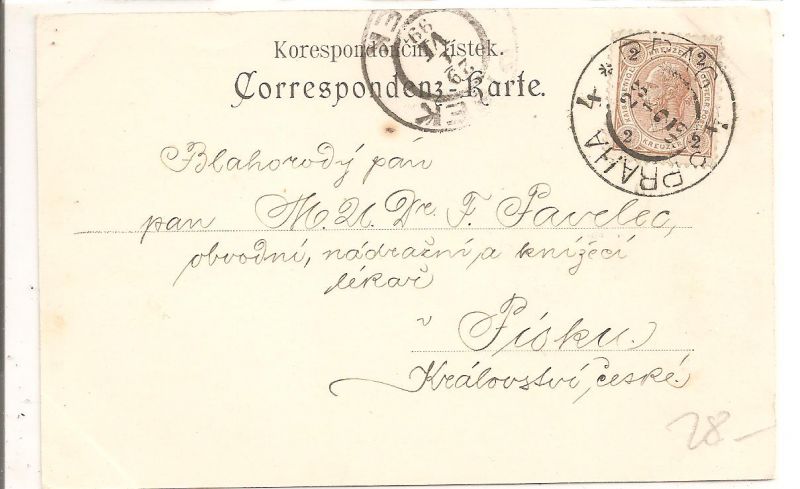 Korespondenční lístek.
Correspondenz-Karte.
PRAHA 4
2 KREUZER 2
2 KREUZER 2
Blahorodý pán
pan M.U.Dr. F. Pavelec,
obvodní, nádražní a knížecí
lékař
v Písku.
Království české.
28-